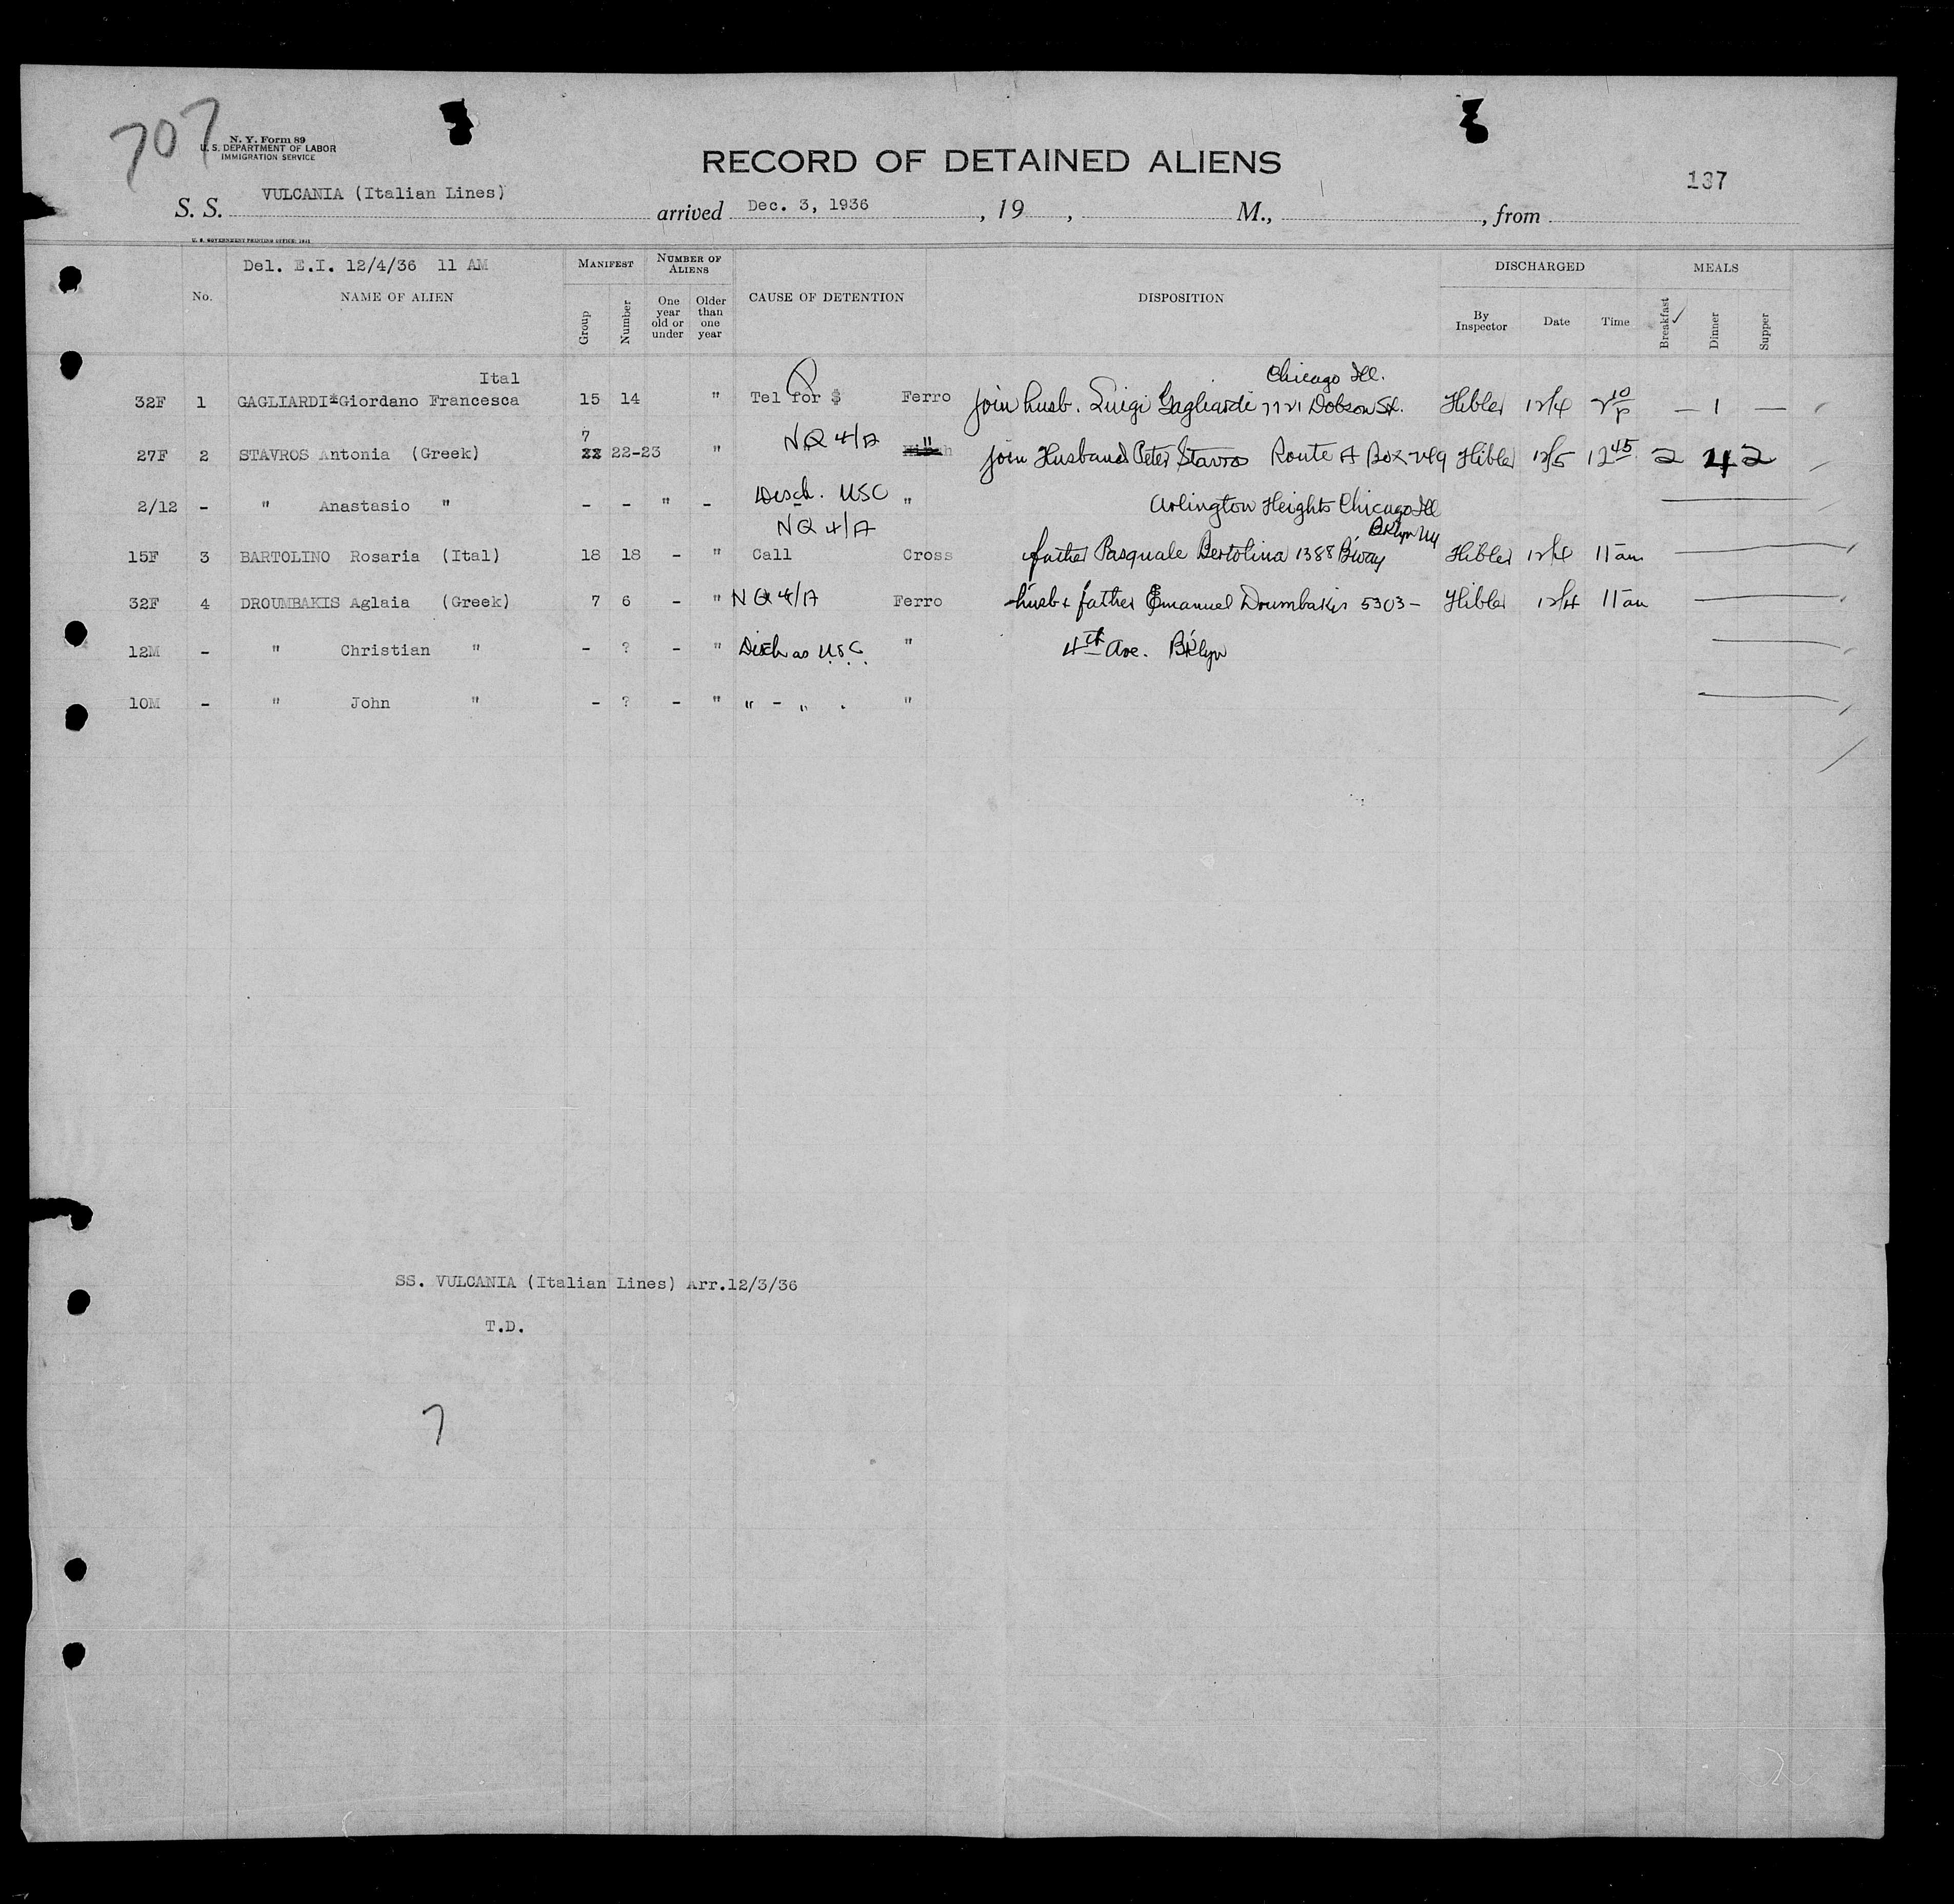 707
N. Y. Form 89
U. S. DEPARTMENT OF LABOR
IMMIGRATION SERVICE
RECORD OF DETAINED ALIENS
137
S. S. VULCANIA (Italian Lines) arrived Dec. 3, 1936, 19 , M., , from
U. S. GOVERNMENT PRINTING OFFICE: 1931
Del. E.I. 12/4/36 11 AM
MANIFEST NUMBER OF ALIENS DISCHARGED MEALS
No. NAME OF ALIEN Group Number One year old or under Older than one year CAUSE OF DETENTION DISPOSITION By Inspector Date Time Breakfast Dinner Supper
Ital Chicago Ill.
32F 1 GAGLIARDI*Giordano Francesca 15 14 " Tel for $ Ferro join husb. Luigi Gagliardi 7721 Dobson St. Hibler 12/4 2 10 P — 1 —
7 NQ 4/A
27F 2 STAVROS Antonia (Greek) 22-23 " " join Husband Peter Stavros Route A Box 249 Hibler 12/5 12 45 2 4 2
Disch. USC
2/12 - " Anastasio " - - " - " Arlington Heights Chicago Ill
NQ 4/A Bklyn NY
15F 3 BARTOLINO Rosaria (Ital) 18 18 - " Call Cross father Pasquale Bertolina 1388 B'way Hibler 12/4 11 am
32F 4 DROUMBAKIS Aglaia (Greek) 7 6 - " NQ 4/A Ferro husb & father Emanuel Doumbakis 5303- Hibler 12/4 11 am
12M - " Christian " - ? - " Disch as U.S.C. " 4th Ave. B'klyn
10M - " John " - ? - " " - " . "
SS. VULCANIA (Italian Lines) Arr.12/3/36
T.D.
7